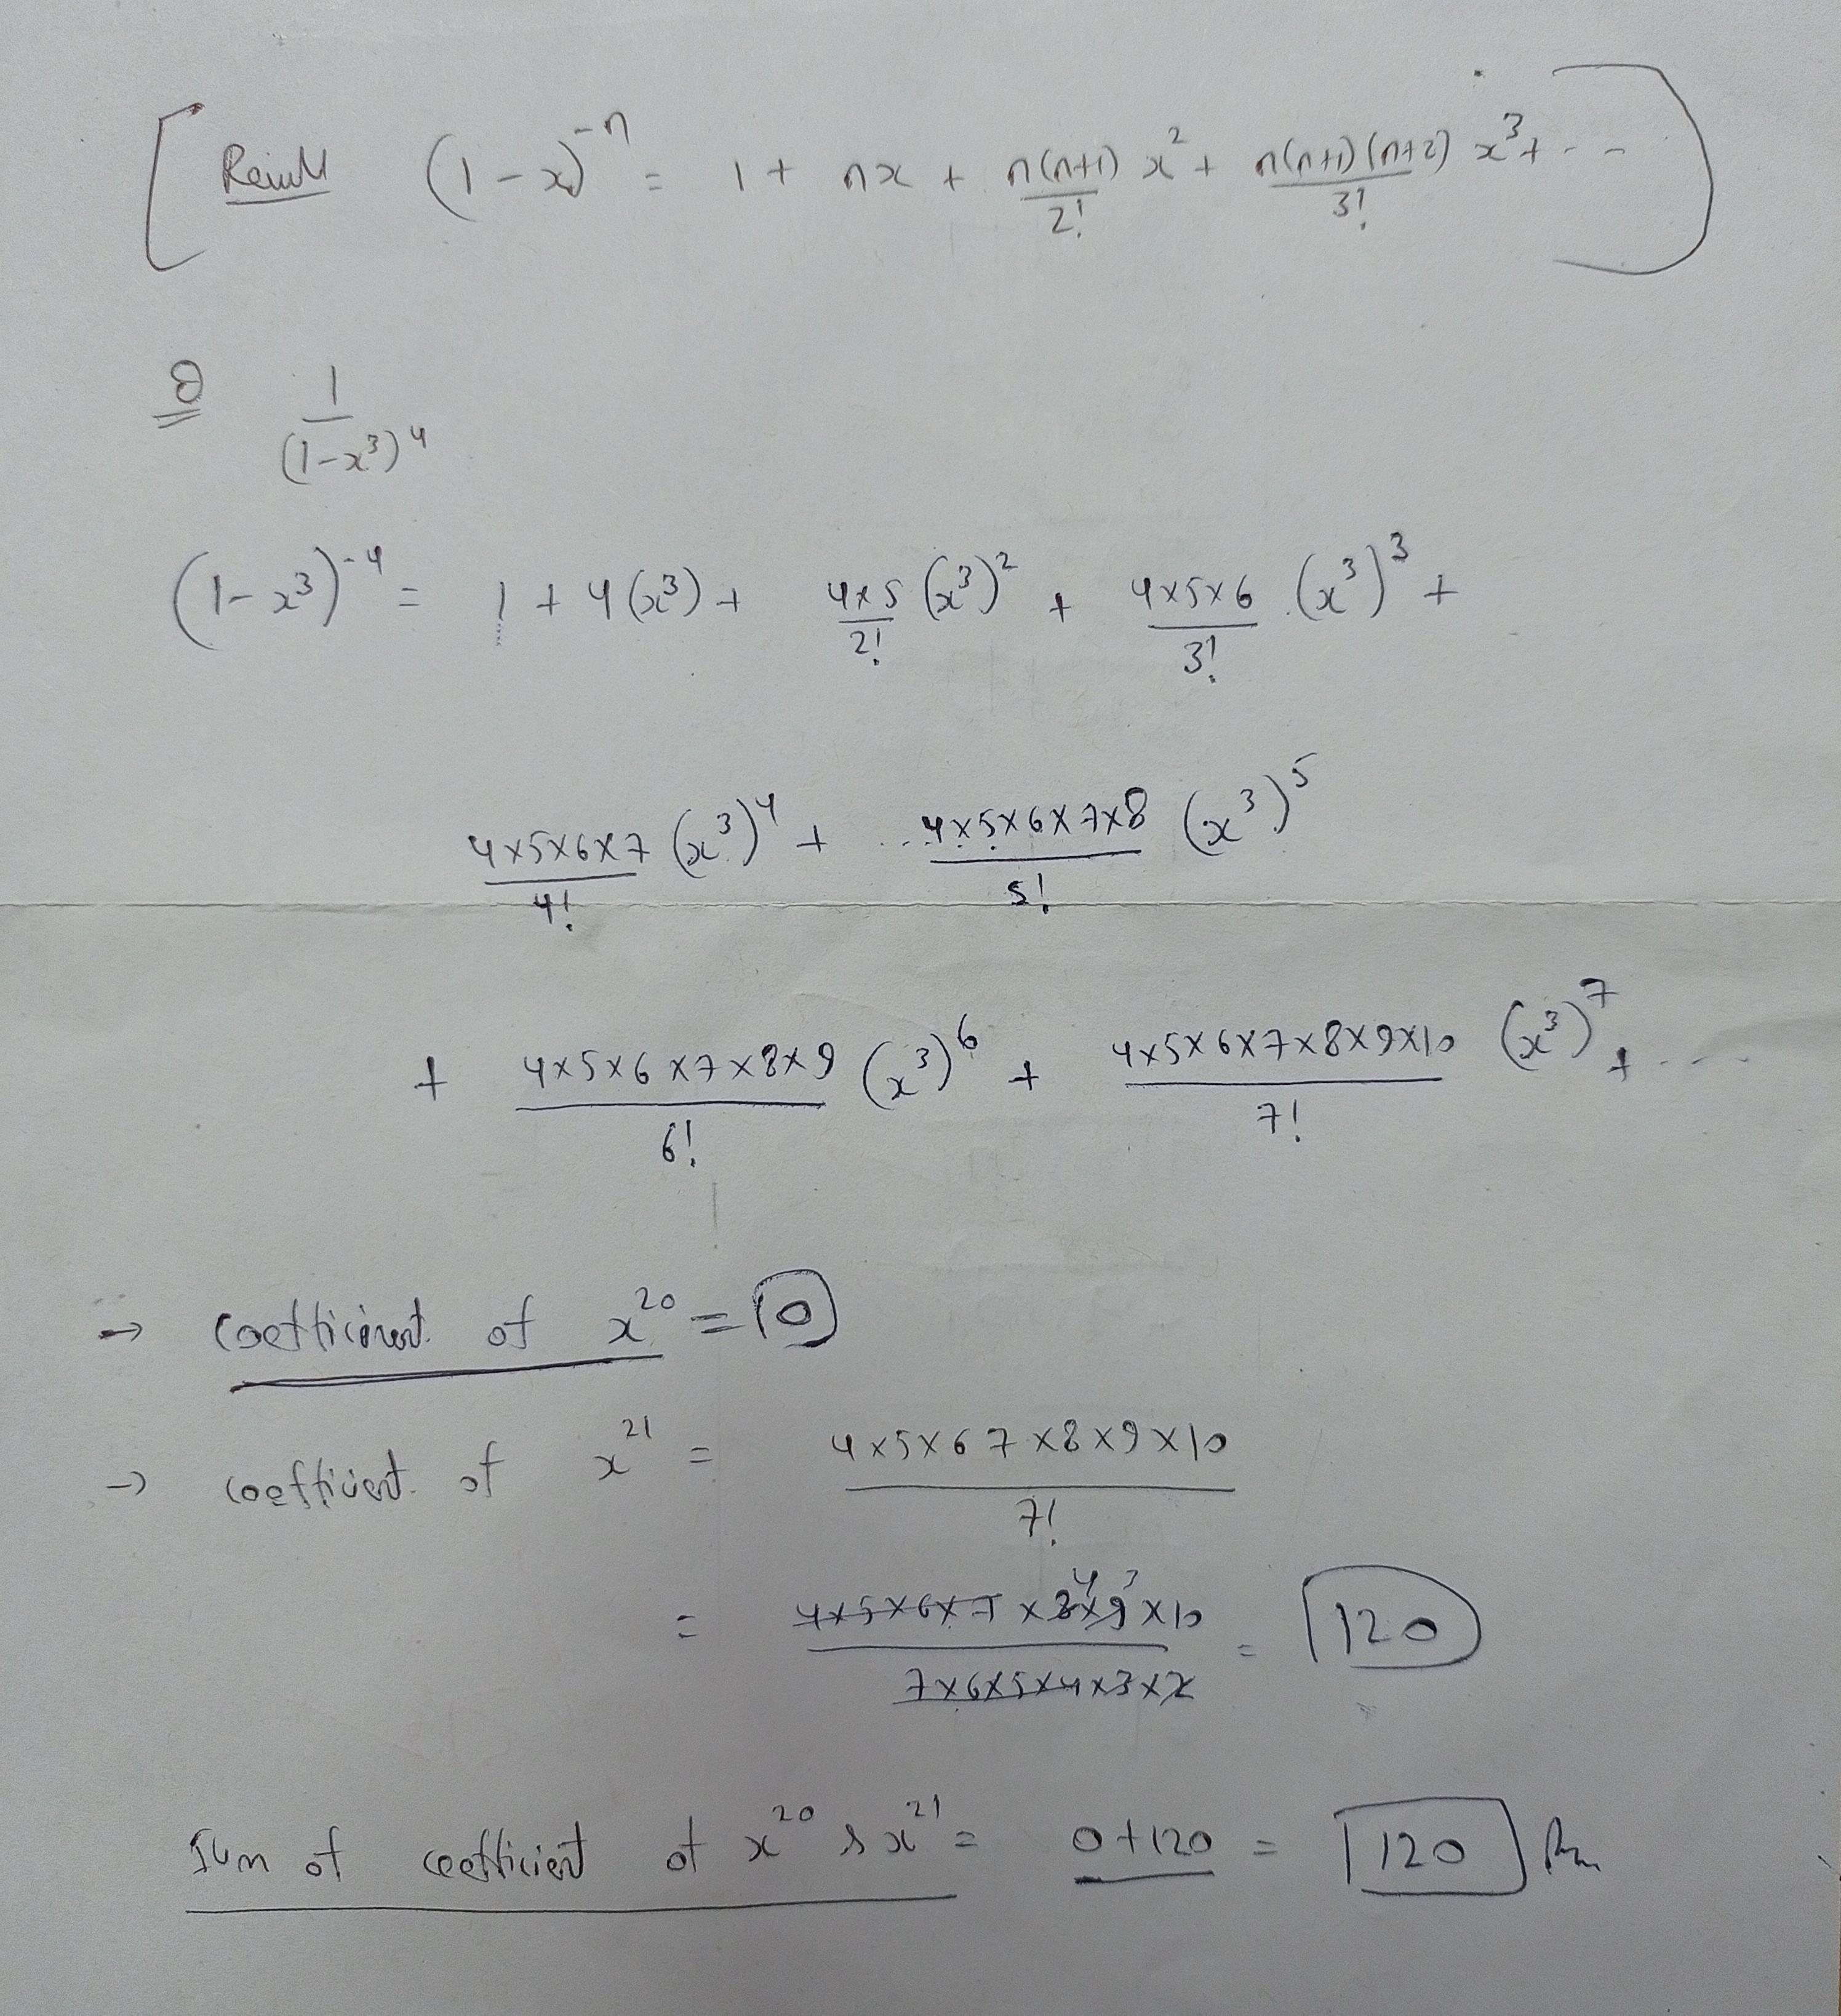 Result (1-x)^-n = 1 + nx + n(n+1)/2! x^2 + n(n+1)(n+2)/3! x^3 + ...
Q 1/(1-x^3)^4
(1-x^3)^-4 = 1 + 4(x^3) + 4×5/2! (x^3)^2 + 4×5×6/3! (x^3)^3 +
4×5×6×7/4! (x^3)^4 + ... 4×5×6×7×8/5! (x^3)^5
+ 4×5×6×7×8×9/6! (x^3)^6 + 4×5×6×7×8×9×10/7! (x^3)^7 + ....
→ coefficient of x^20 = 0
→ coefficient of x^21 = 4×5×6 7×8×9×10/7!
= 4×5×6×7×8×9×10/7×6×5×4×3×2 = 120
Sum of coefficient of x^20 & x^21 = 0+120 = 120